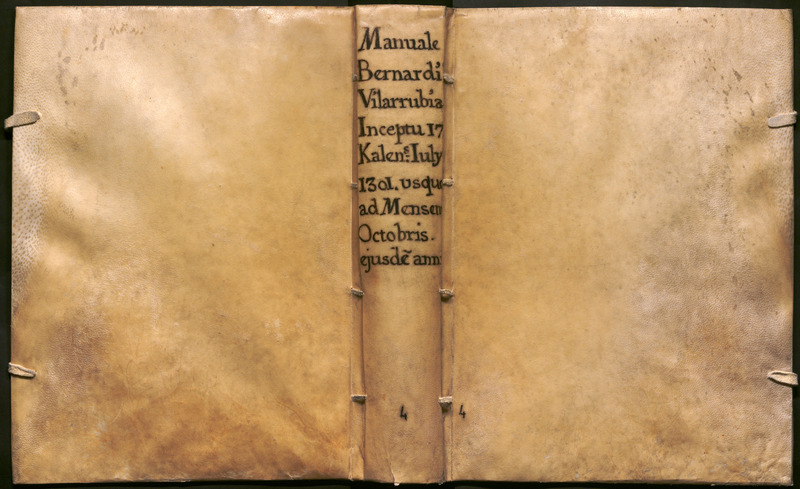 Manuale
Bernardi
Vilarrubia
Inceptu 17
Kalens. Iuly
1301. usque
ad Mensem
Octobris.
ejusdē anni
4 4